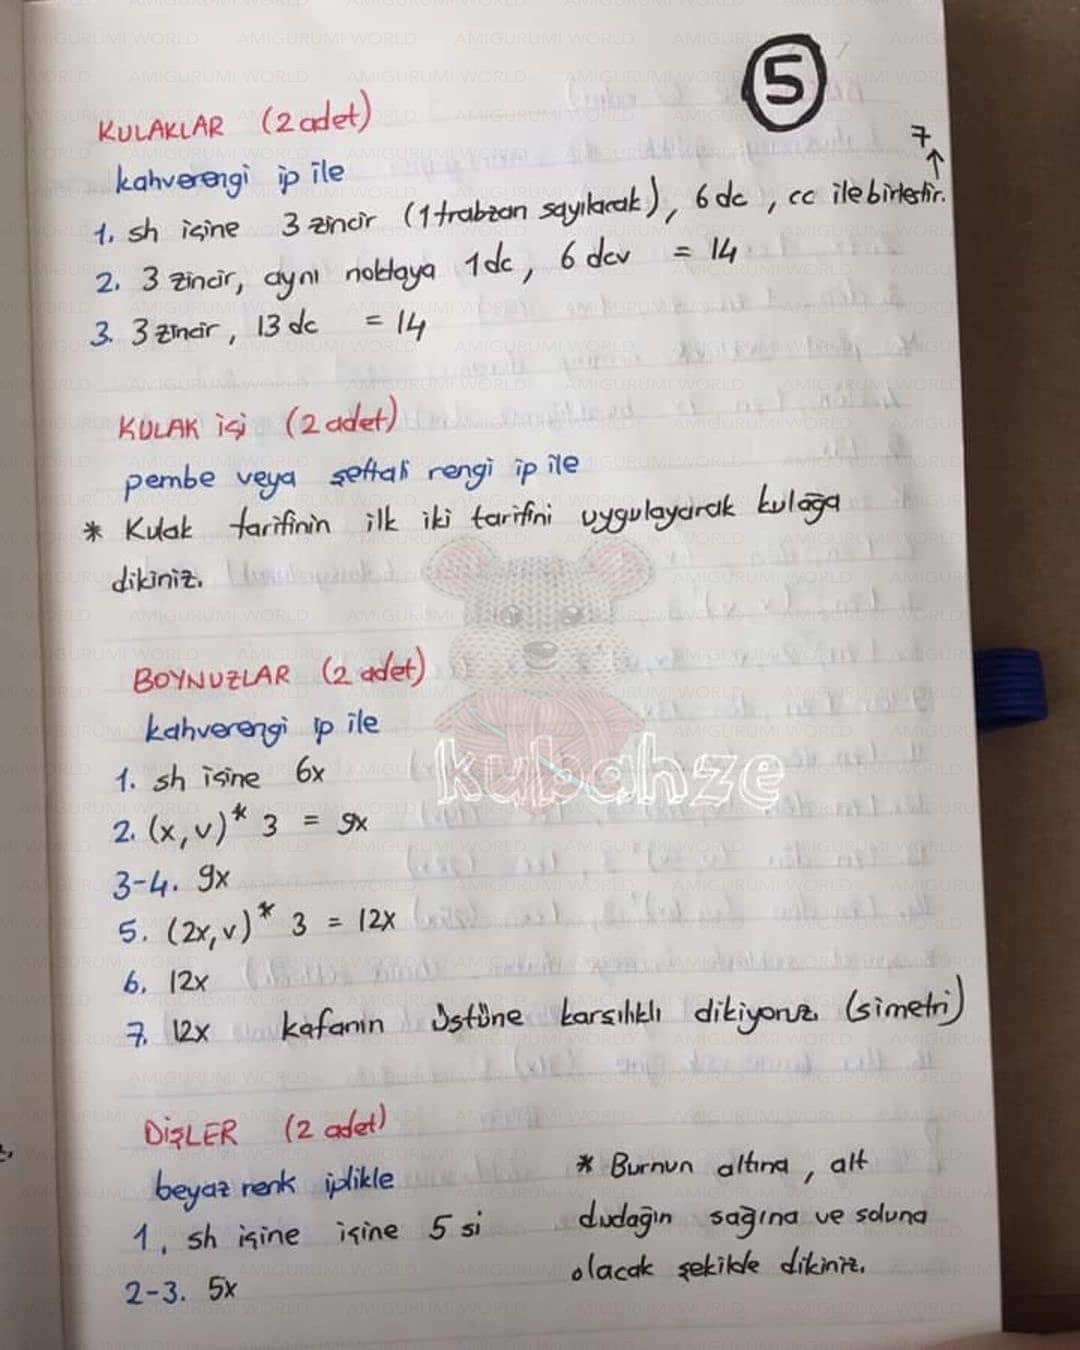 5
KULAKLAR (2 adet)
kahverengi ip ile
7
1. sh içine 3 zincir (1 trabzan sayılacak), 6 dc , cc ile birleştir.
2. 3 zincir, aynı noktaya 1 dc, 6 dcv = 14
3. 3 zincir, 13 dc = 14
KULAK içi (2 adet)
pembe veya şeftali rengi ip ile
* Kulak tarifinin ilk iki tarifini uygulayarak kulağa
dikiniz.
BOYNUZLAR (2 adet)
kahverengi ip ile
1. sh içine 6x
2. (x,v)* 3 = 9x
3-4. 9x
5. (2x,v)* 3 = 12x
6. 12x
7. 12x kafanın üstüne karşılıklı dikiyoruz. (simetri)
DİŞLER (2 adet)
beyaz renk iplikle
1. sh içine içine 5 si
2-3. 5x
* Burnun altına, alt
dudağın sağına ve soluna
olacak şekilde dikiniz.
kubahze
AMIGURUMI WORLD